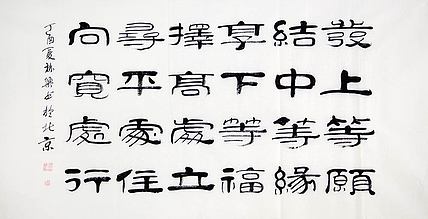 發上等願
結中等緣
享下等福
擇髙處立
尋平處住
向寬處行
丁酉夏 书於北京